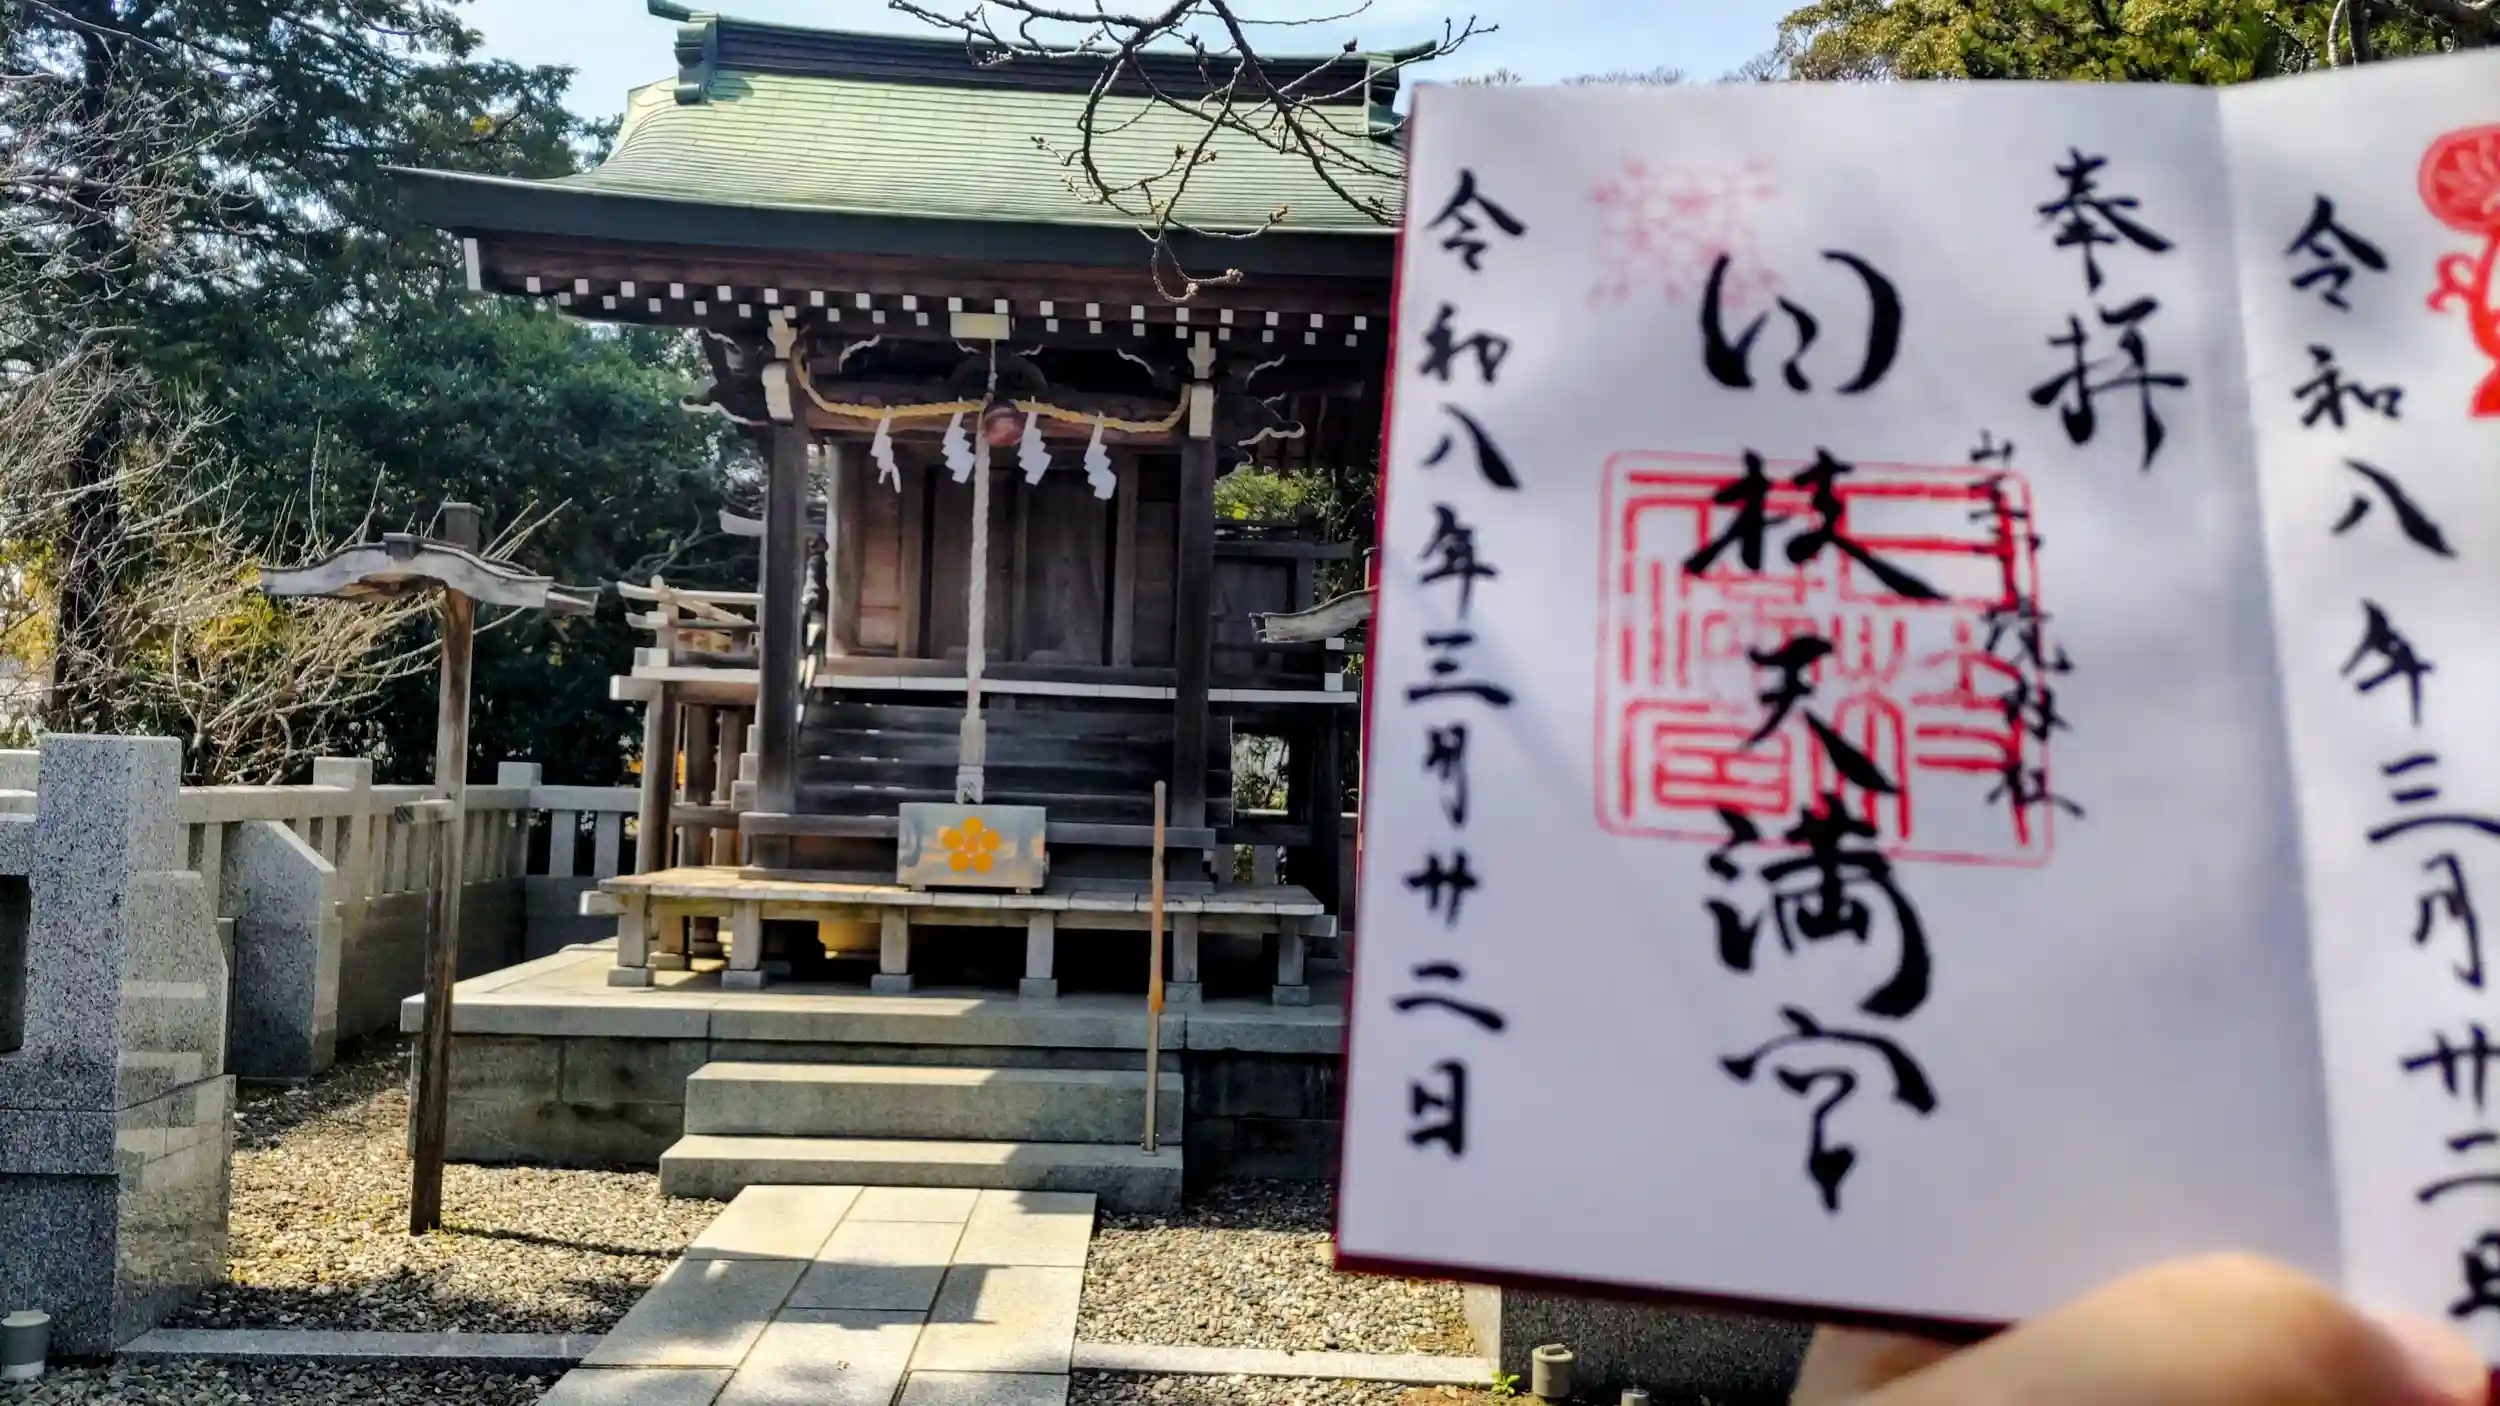 令和八年三月廿二日
奉拝
枝天満宮
令和八年三月廿二日